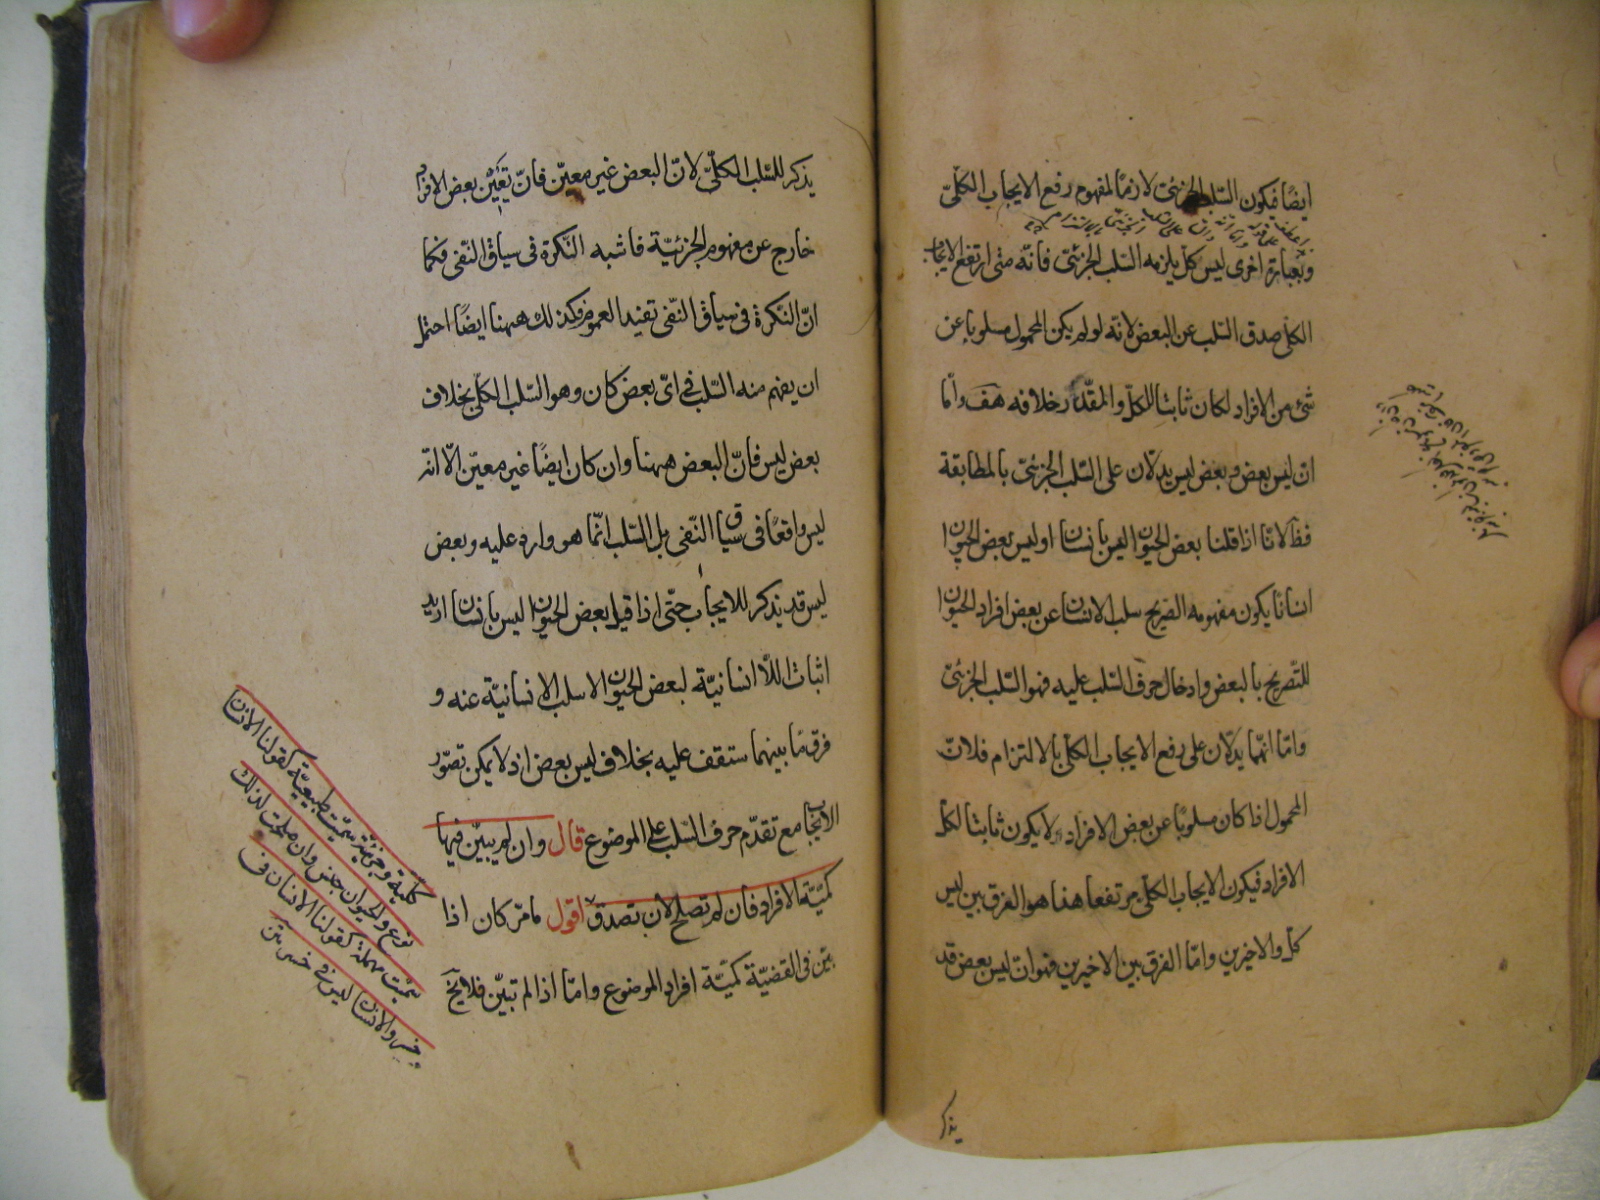 ايضًا فيكون السّلب الجزئىّ لازمًا لمفهوم رفع الايجاب الكلّىّ
وبعبارة اخرى ليس كلّ يلزمه السّلب الجزئىّ فانّه متى ارتفع الايجاب
الكلّى صدق السّلب عن البعض لانّه لو لم يكن المحمول مسلوبا عن
شئ من الافراد لكان ثابتا للكلّ والمقدّر خلافه هف وامّا
انّ ليس بعض وبعض ليس يدلّان على السّلب الجزئىّ بالمطابقة
فظ لانّا اذا قلنا بعض الحيوان ليس بانسان او ليس بعض الحيوان
انسانا يكون مفهومه الصّريح سلب الانسان عن بعض افراد الحيوان
للتّصريح بالبعض وادخال حرف السّلب عليه فهو السّلب الجزئىّ
وامّا انّهما يدلّان على رفع الايجاب الكلّى بالالتزام فلانّ
المحمول اذا كان مسلوبًا عن بعض الافراد لا يكون ثابتا لكلّ
الافراد فيكون الايجاب الكلّى مرتفعا هذا هو الفرق بين ليس
كلّ والاخيرين وامّا الفرق بين الاخيرين فهو انّ ليس بعض قد
يذكر
يذكر للسّلب الكلّىّ لانّ البعض غير معيّن فانّ تعيّن بعض الافراد
خارج عن مفهوم الجزئيّة فاشبه النّكرة فى سياق النّفى فكما
انّ النّكرة فى سياق النّفى تفيد العموم فكذلك ههنا ايضًا احتمل
ان يفهم منه السّلب فى اىّ بعض كان وهو السّلب الكلّى بخلاف
بعض ليس فانّ البعض ههنا وان كان ايضًا غير معيّن الّا انّه
ليس واقعًا فى سياق النّفى بل السّلب انّما هو وارد عليه وبعض
ليس قد يذكر للايجاب حتّى اذا قيل بعض الحيوان ليس بانسان اريد
اثبات اللّاانسانيّة لبعض الحيوان لا سلب الانسانيّة عنه و
فرق ما بينهما ستقف عليه بخلاف ليس بعض اذ لا يمكن تصوّر
الايجاب مع تقدّم حرف السّلب على الموضوع قال وان لم يبيّن فيها
كميّة الافراد فان لم تصلح لان تصدق
كليّة وجزئيّة سمّيت طبيعيّة كقولنا الانسان
نوع والحيوان جنس وان صلحت لذلك
سمّيت مهملة كقولنا الانسان فى
خسر والانسان ليس فى خسر
اقول ما مرّ كان اذا
بيّن فى القضيّة كميّة افراد الموضوع وامّا اذا لم تبيّن فلا يخ